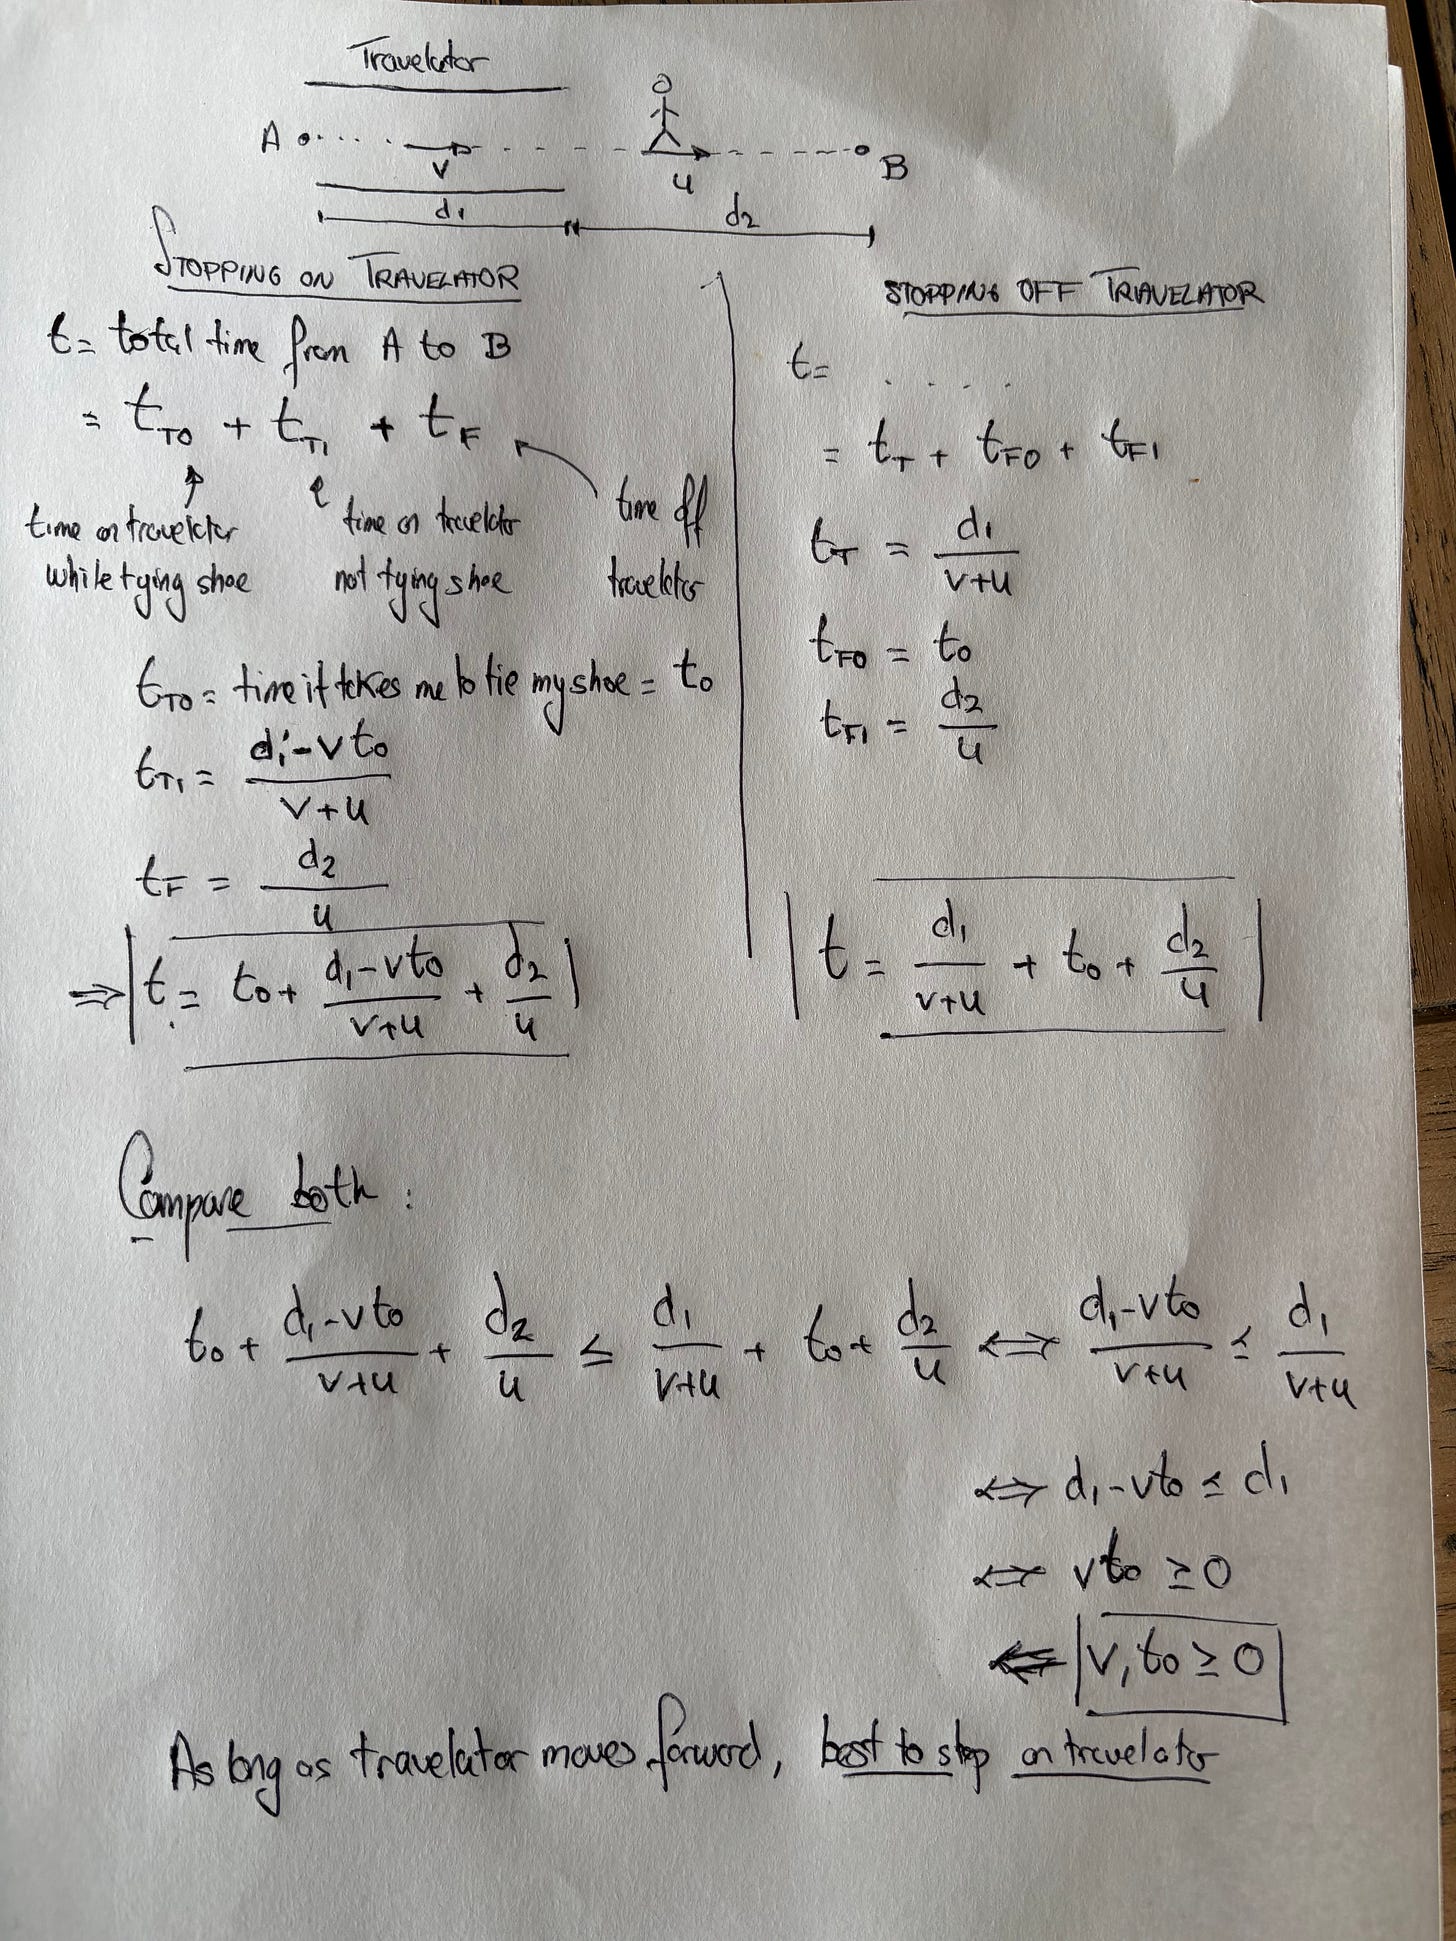 Travelator
A
v
u
B
d₁
d₂
STOPPING ON TRAVELATOR
t = total time from A to B
= t_T0 + t_T1 + t_F
time on travelator while tying shoe
time on travelator not tying shoe
time off travelator
t_T0 = time it takes me to tie my shoe = t₀
t_T1 = (d₁ - v t₀) / (v + u)
t_F = d₂ / u
⇒ t = t₀ + (d₁ - v t₀) / (v + u) + d₂ / u
STOPPING OFF TRAVELATOR
t = . . . .
= t_T + t_F0 + t_F1
t_T = d₁ / (v + u)
t_F0 = t₀
t_F1 = d₂ / u
t = d₁ / (v + u) + t₀ + d₂ / u
Compare both :
t₀ + (d₁ - v t₀) / (v + u) + d₂ / u ≤ d₁ / (v + u) + t₀ + d₂ / u ⇔ (d₁ - v t₀) / (v + u) ≤ d₁ / (v + u)
⇔ d₁ - v t₀ ≤ d₁
⇔ v t₀ ≥ 0
⇐ v, t₀ ≥ 0
As long as travelator moves forward, best to stop on travelator